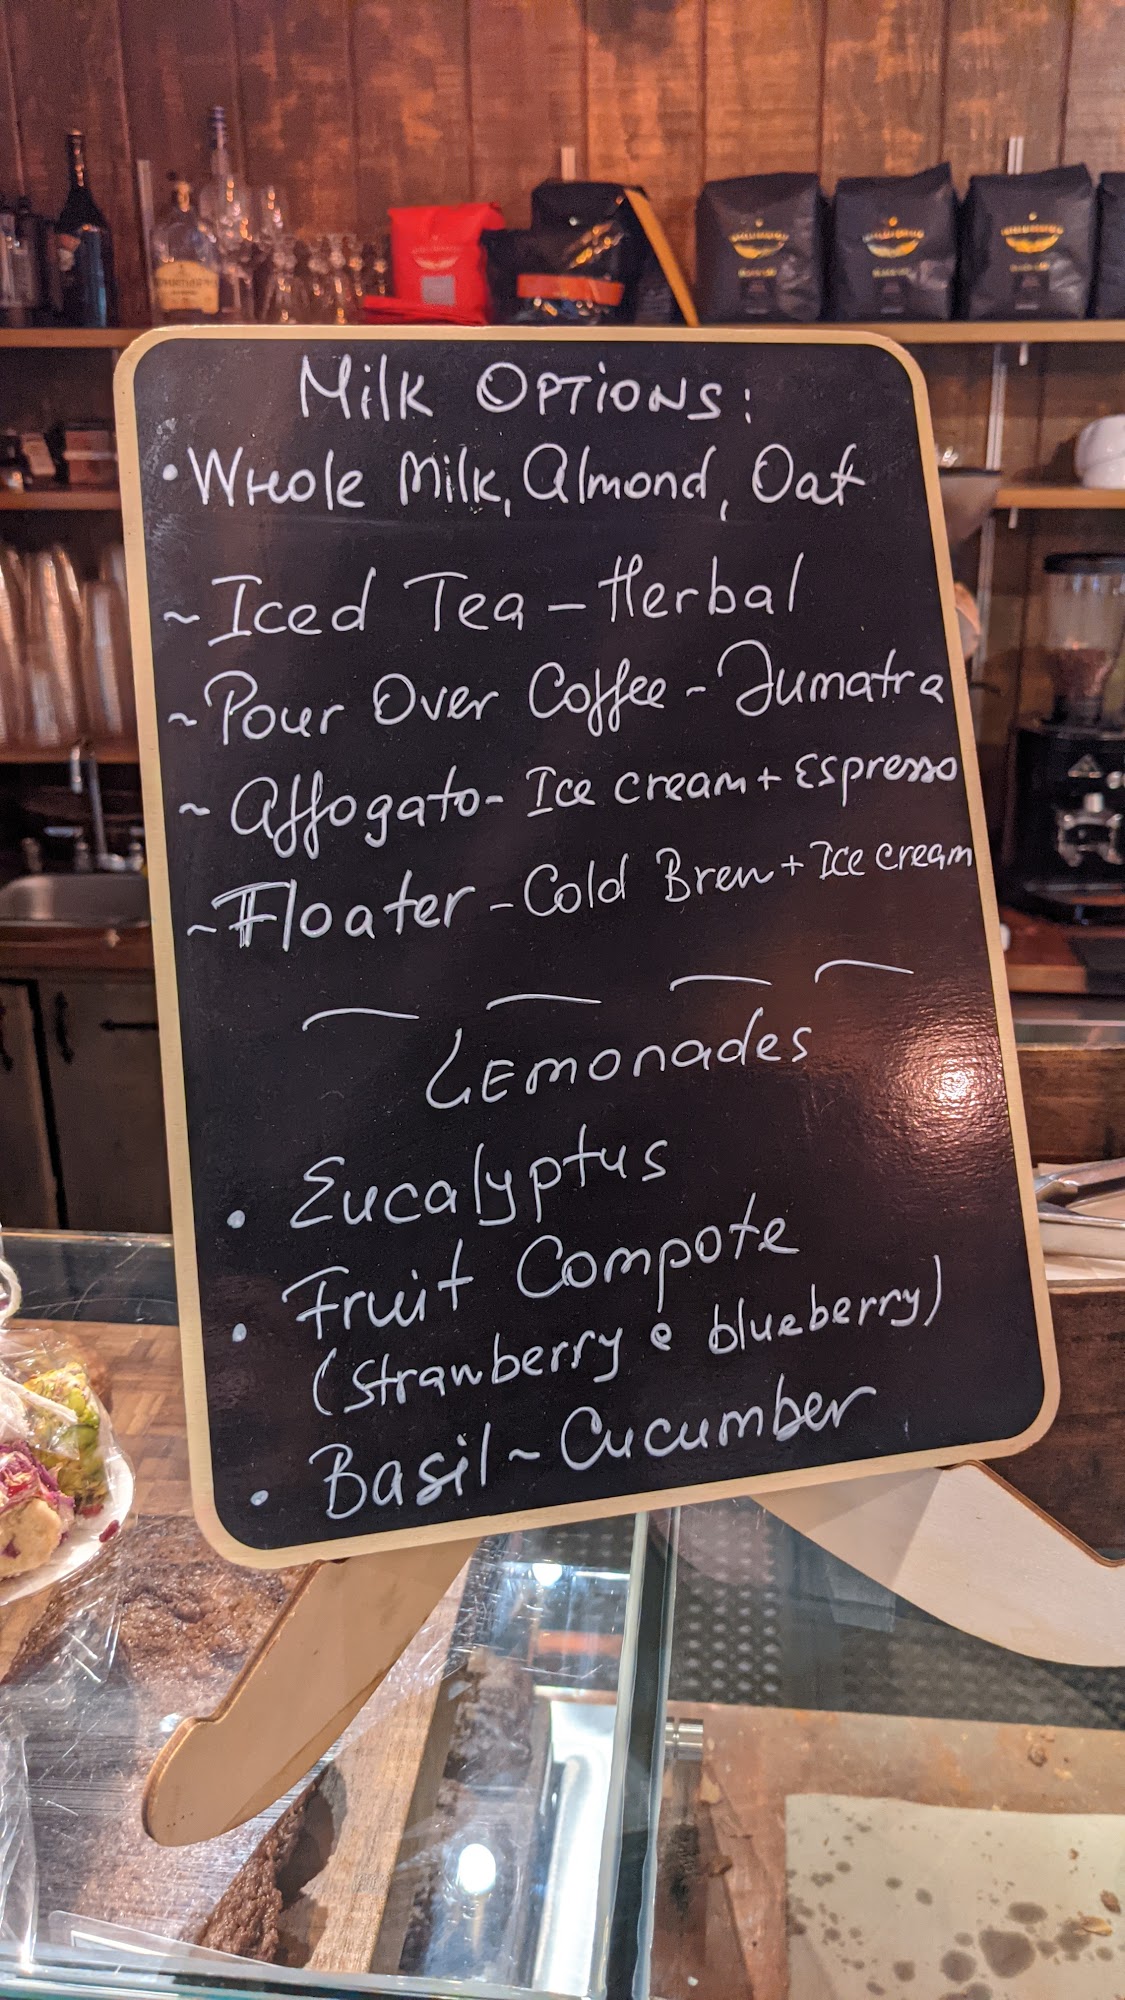 Milk Options:
• Whole Milk, Almond, Oat
~ Iced Tea – Herbal
~ Pour Over Coffee - Sumatra
~ Affogato - Ice cream + Espresso
~ Floater - Cold Brew + Ice cream
Lemonades
• Eucalyptus
• Fruit Compote
(strawberry e blueberry)
• Basil ~ Cucumber